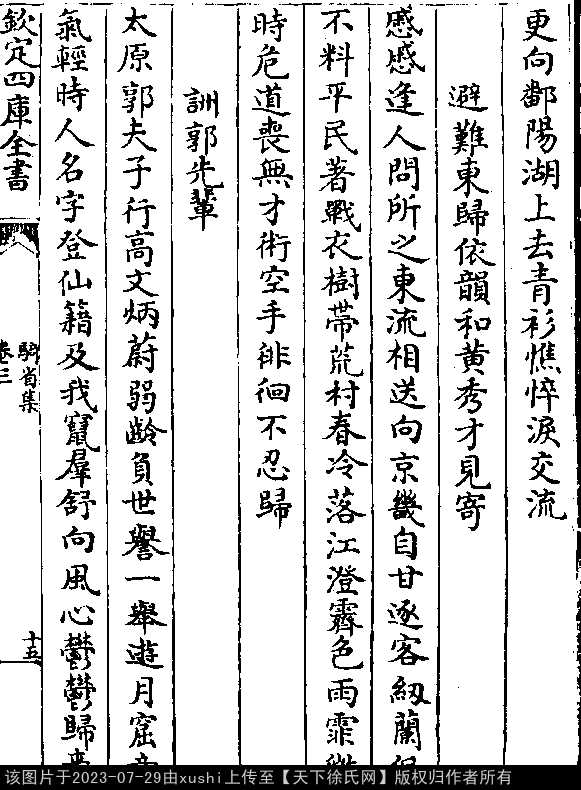 更向鄱陽湖上去青衫憔悴淚交流
避難東歸依韻和黄秀才見寄
慼慼逢人問所之東流相送向京畿自甘逐客紉蘭
不料平民著戰衣樹帶荒村春冷落江澄霽色雨霏
時危道喪無才術空手徘徊不忍歸
詶郭先輩
太原郭夫子行高文炳蔚弱齡負世譽一舉遊月窟
氣輕時人名字登仙籍及我竄羣舒向風心鬱鬱歸
欽定四庫全書
騎省集
卷三
十五
该图片于2023-07-29由xushi上传至【天下徐氏网】版权归作者所有